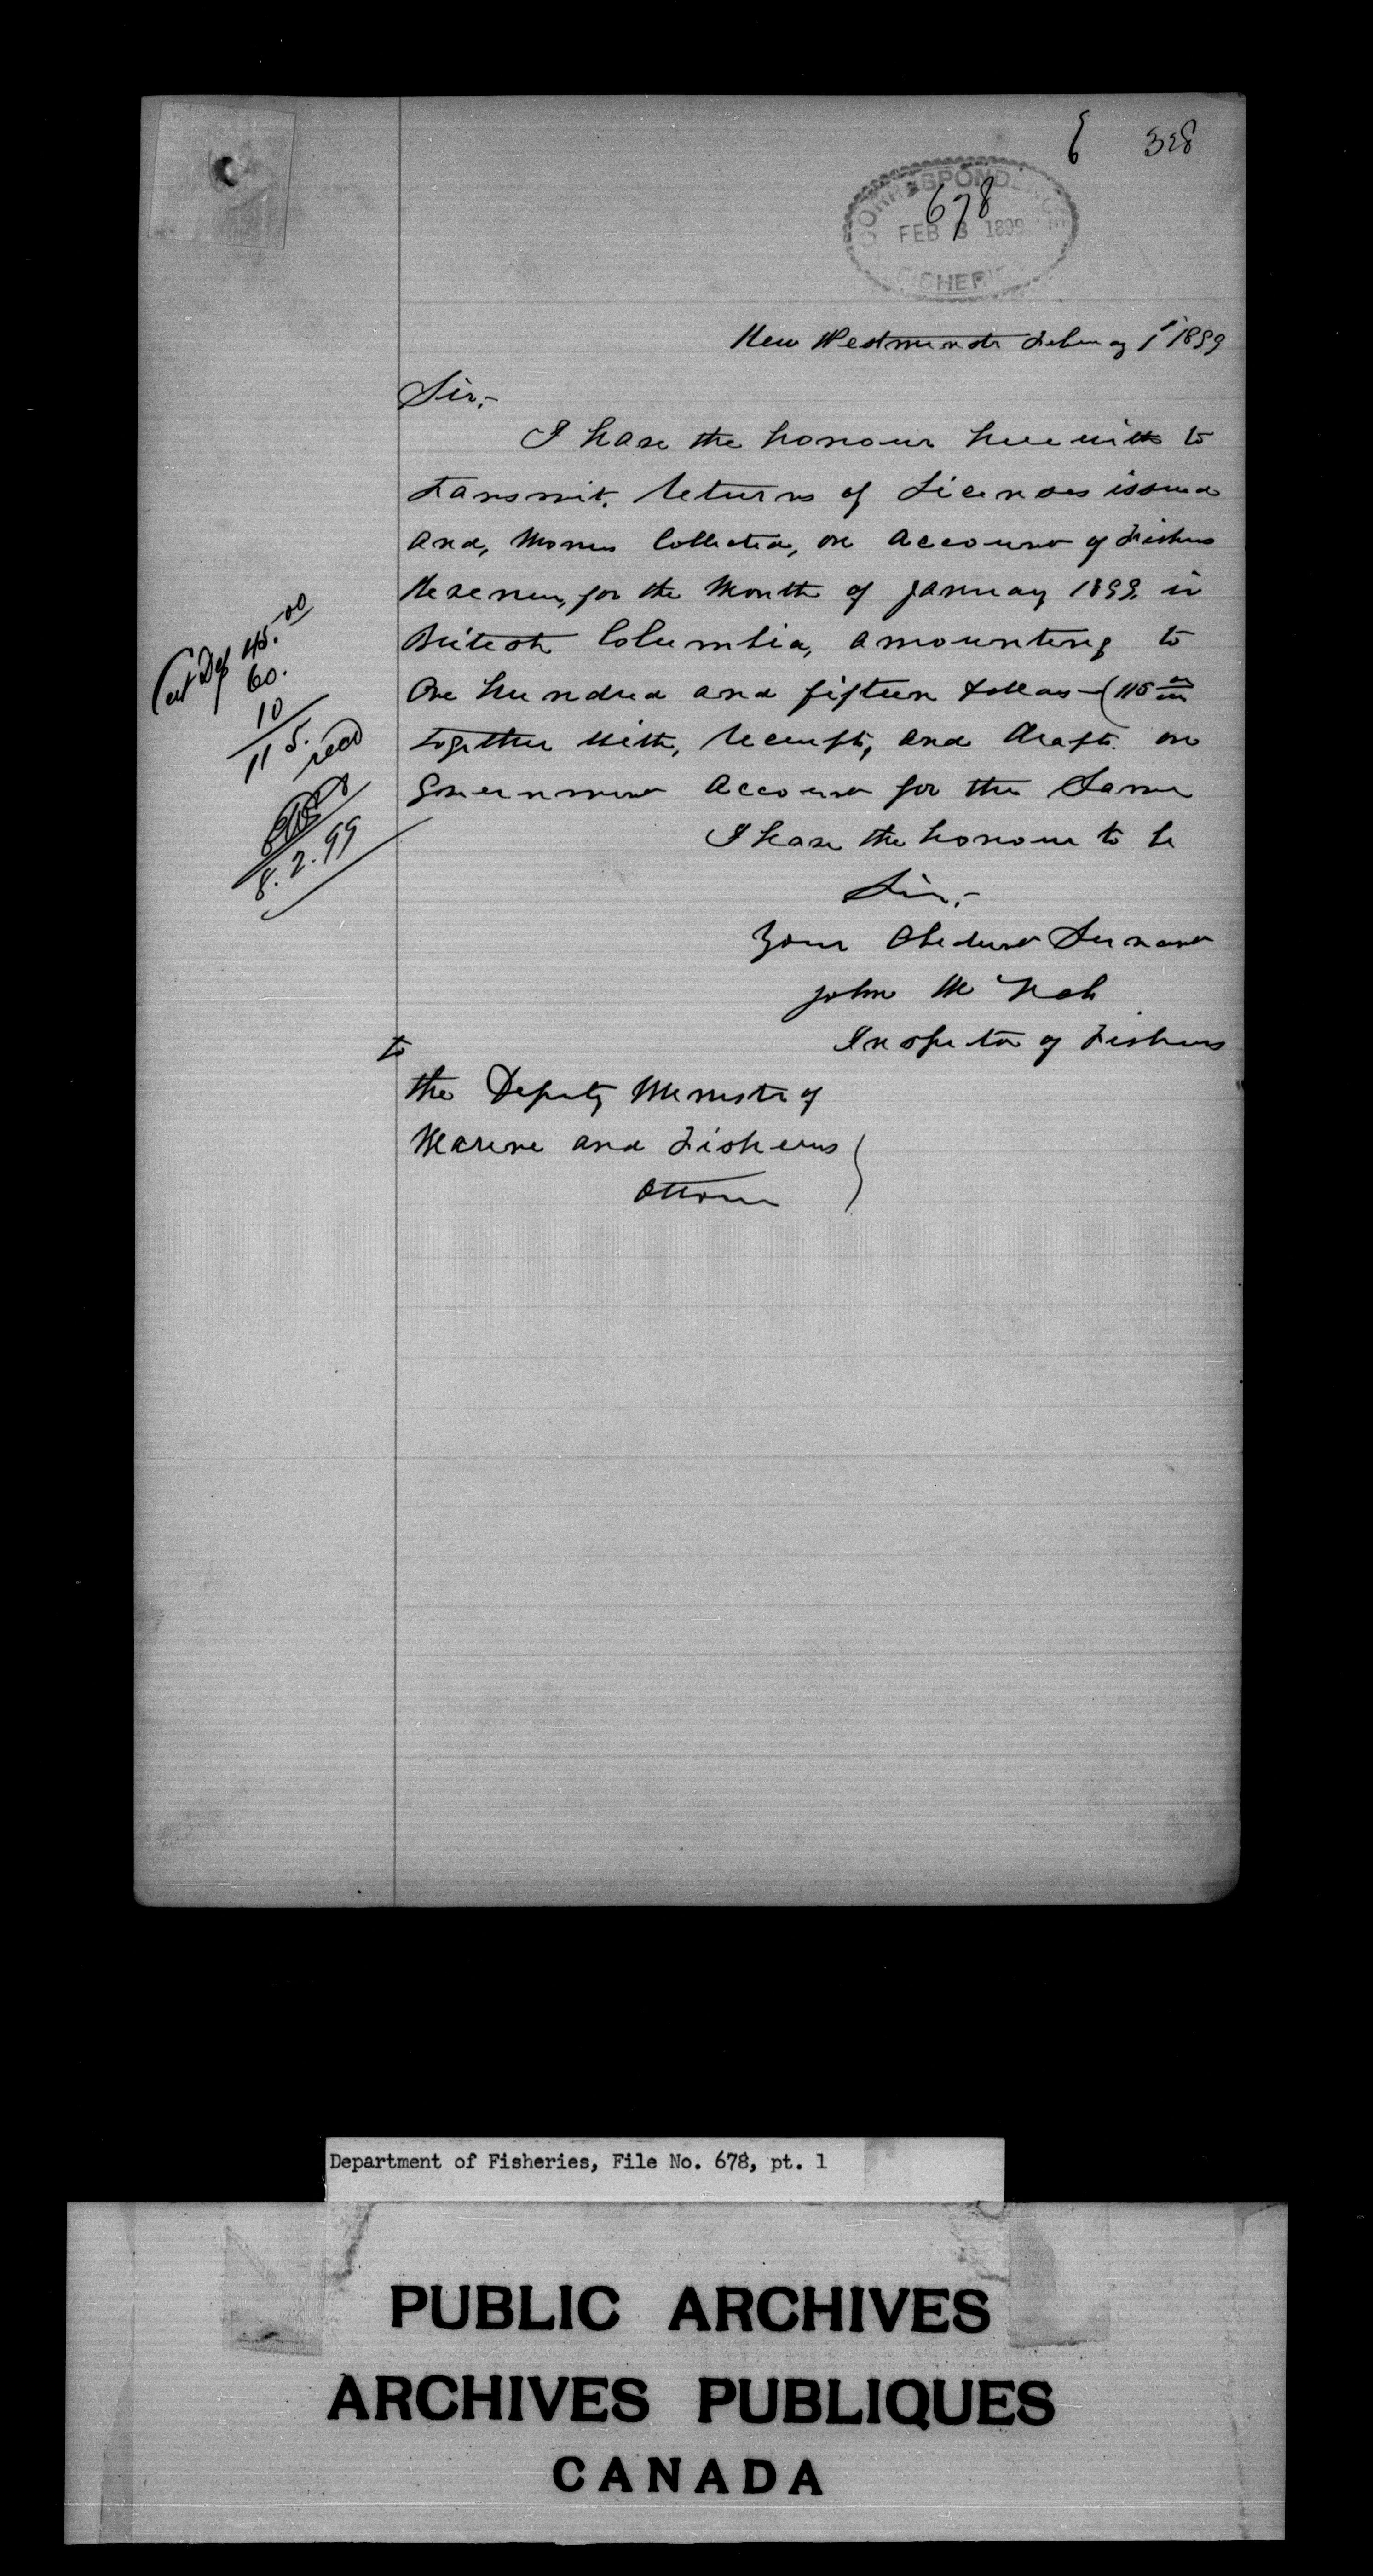 6 328
CORRESPONDENCE
678
FEB 8 1899
FISHERIES
New Westminster February 1st 1899
Sir,-
I have the honour herewith to
transmit, Returns of Licenses issued
and, Monies Collected, on account of Fisheries
Revenue, for the Month of January 1899, in
British Columbia, amounting to
One hundred and fifteen dollars - (115 00/100
together with, receipts, and draft on
Government account for the Same
I have the honour to be
Sir,-
Your Obedient Servant
John McNab
Inspector of Fisheries
to
the Deputy Minister of
Marine and Fisheries
Ottawa
Cert Dep 45.00
60.
10
115.
recd
8.2.99
Department of Fisheries, File No. 678, pt. 1
PUBLIC ARCHIVES
ARCHIVES PUBLIQUES
CANADA